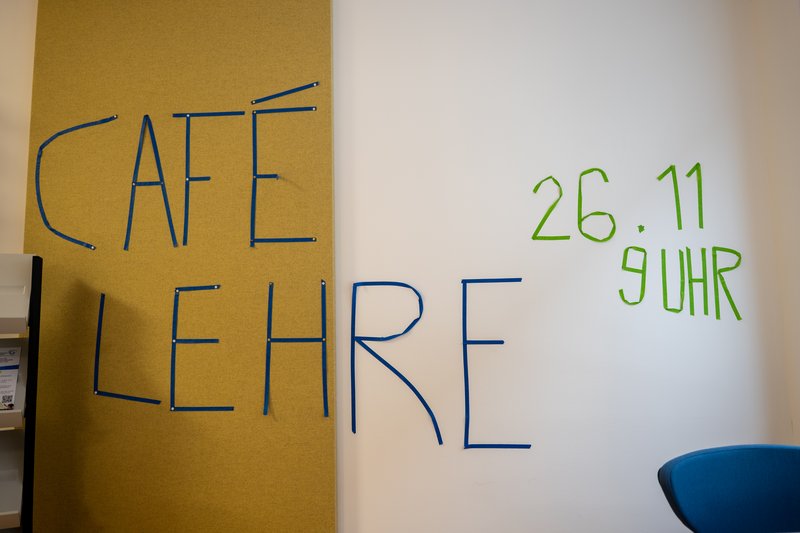 CAFÉ
LEHRE
26.11
9 UHR